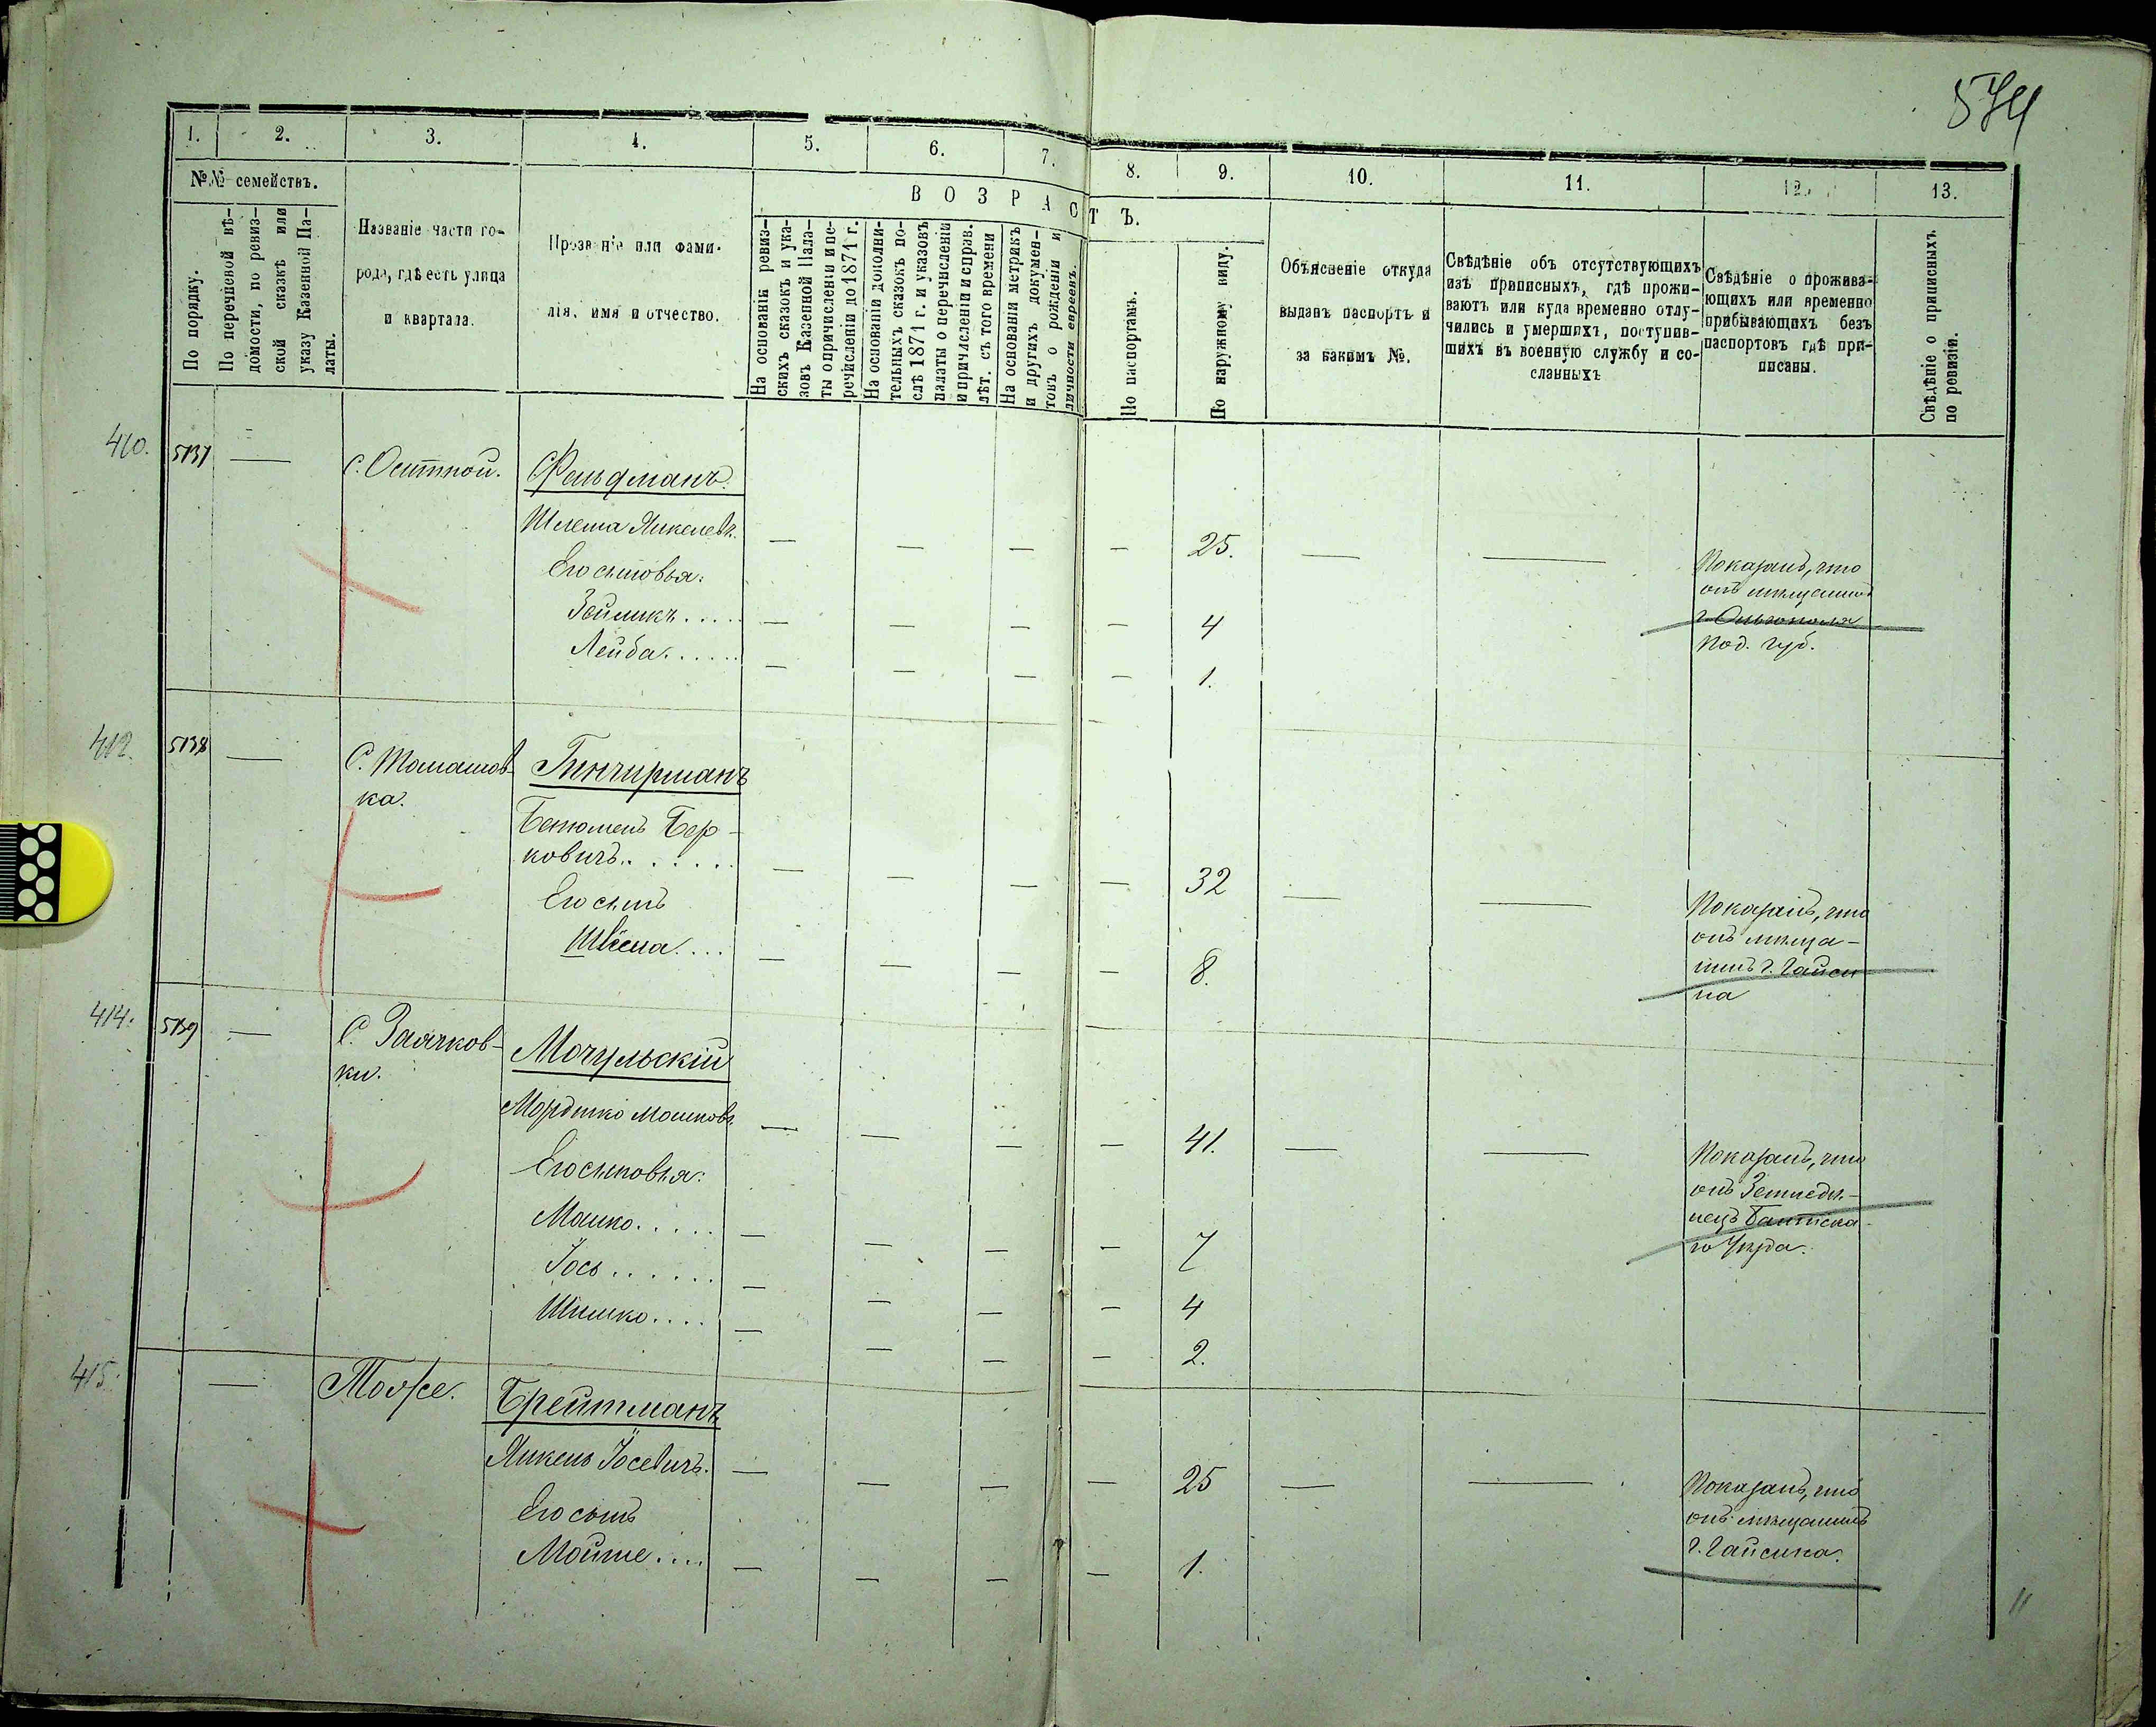 574
1. 2. 3. 4. 5. 6. 7. 8. 9. 10. 11. 12. 13.
№№ семействъ.
По порядку.
По перечневой вѣ-
домости, по ревиз-
ской сказкѣ или
указу Казенной Па-
латы.
Названіе части го-
рода, гдѣ есть улица
и квартала.
Прозваніе или фами-
лія, имя и отчество.
ВОЗРАСТЪ.
На основаніи ревиз-
скихъ сказокъ и ука-
зовъ Казенной Пала-
ты о причисленіи и пе-
речисленіи до 1871 г.
На основаніи дополни-
тельныхъ сказокъ по-
слѣ 1871 г. и указовъ
палаты о перечисленіи
и причисленіи и справ.
лѣт. съ того времени
На основаніи метрикъ
и другихъ докумен-
товъ о рожденіи и
личности евреевъ.
По паспортамъ.
По наружному виду.
Объясненіе откуда
выданъ паспортъ и
за какимъ №.
Свѣдѣніе объ отсутствующихъ
изъ приписныхъ, гдѣ прожи-
ваютъ или куда временно отлу-
чились и умершихъ, поступив-
шихъ въ военную службу и со-
сланныхъ
Свѣдѣніе о прожива-
ющихъ или временно
прибывающихъ безъ
паспортовъ гдѣ при-
писаны.
Свѣдѣніе о приписныхъ
по ревизіи.
410. 5137 — с. Оситной. Фельдманъ.
Шлема Янкелев. — — — — 25. — — Показалъ, что
Его сыновья: онъ мѣщанинъ
Зейликъ..... — — — — 4 г. Ольгополя
Лейба...... — — — — 1. Под. губ.
412. 5138 — С. Томашов-
ка. Гинчерманъ
Бер-
ковичъ....... — — — — 32 — — Показалъ, что
Его сынъ онъ мѣща-
.... — — — — 8. нинъ г. Гайси
на
414. 5139 — С. Заячков-
ки. Мочульскій
Мордко Мошков. — — — — 41. — — Показалъ, что
Его сыновья: онъ Земледѣ-
Мошко..... — — — — 7 лецъ Балтска-
Іось...... — — — — 4 го Уѣзда.
Шмилко.... — — — — 2.
415. — Тоже. Брейтманъ
Янкель Іосевичъ. — — — — 25 — — Показалъ, что
Его сынъ онъ мѣщанинъ
Мойше.... — — — — 1. г. Гайсина.